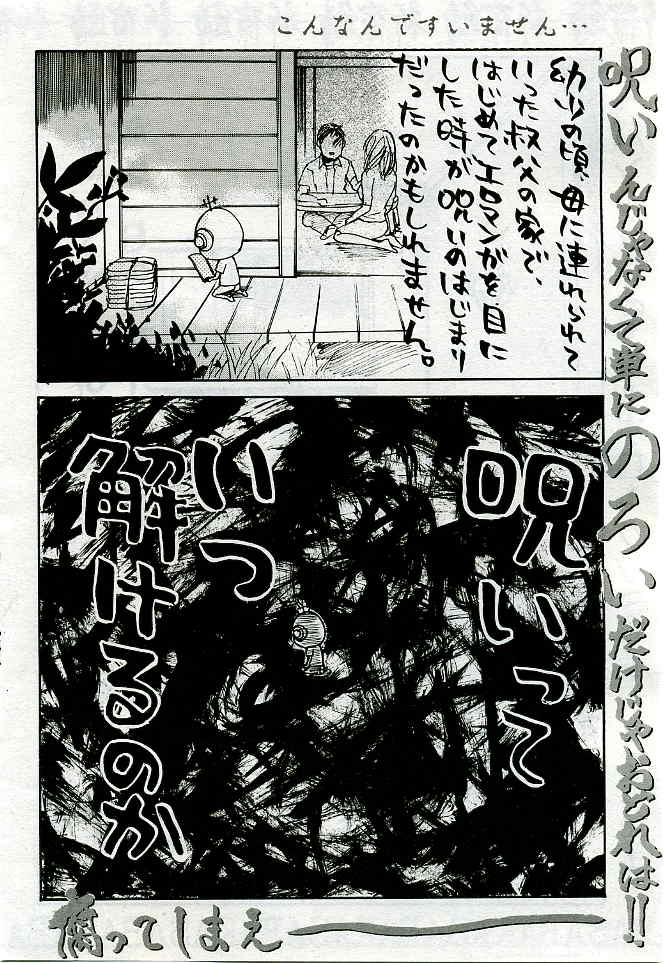 こんなんですいません…
呪いんじゃなくて単にのろいだけじゃおどれは!!
幼少の頃、母に連れられて
いった叔父の家で、
はじめてエロマンガを目に
した時が呪いのはじまり
だったのかもしれません。
呪いって
いつ
解けるのか
腐ってしまえ